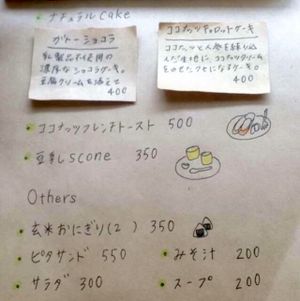 ・ナチュラルcake
ガトーショコラ
乳製品不使用の
濃厚なショコラケーキ。
豆腐クリームを添えて
400
ココナッツキャロットケーキ
ココナッツと人参を練り込
んだ生地に、ココナッツクリーム
をのせたケーキ。
400
・ココナッツフレンチトースト 500
・豆乳scone 350
Others
・玄米おにぎり(2) 350
・ピタサンド 550
・みそ汁 200
・サラダ 300
・スープ 200